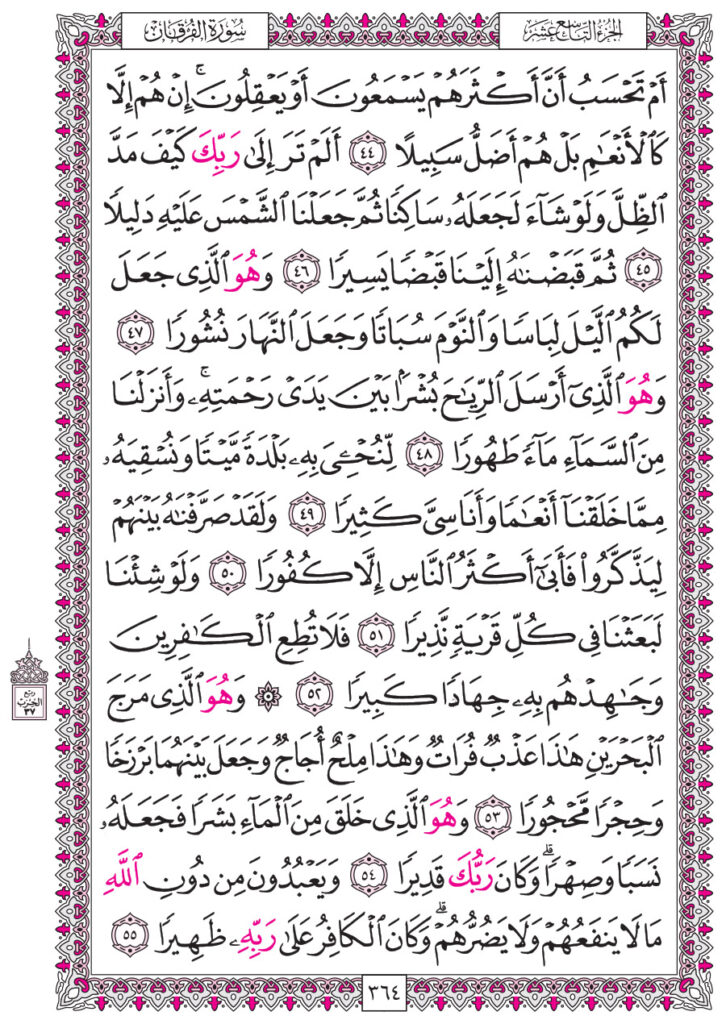 الجزء التاسع عشر
سورة الفرقان
أَمْ تَحْسَبُ أَنَّ أَكْثَرَهُمْ يَسْمَعُونَ أَوْ يَعْقِلُونَ ۚ إِنْ هُمْ إِلَّا
كَالْأَنْعَامِ بَلْ هُمْ أَضَلُّ سَبِيلًا ٤٤ أَلَمْ تَرَ إِلَىٰ رَبِّكَ كَيْفَ مَدَّ
الظِّلَّ وَلَوْ شَاءَ لَجَعَلَهُ سَاكِنًا ثُمَّ جَعَلْنَا الشَّمْسَ عَلَيْهِ دَلِيلًا
٤٥ ثُمَّ قَبَضْنَاهُ إِلَيْنَا قَبْضًا يَسِيرًا ٤٦ وَهُوَ الَّذِي جَعَلَ
لَكُمُ اللَّيْلَ لِبَاسًا وَالنَّوْمَ سُبَاتًا وَجَعَلَ النَّهَارَ نُشُورًا ٤٧
وَهُوَ الَّذِي أَرْسَلَ الرِّيَاحَ بُشْرًا بَيْنَ يَدَيْ رَحْمَتِهِ ۚ وَأَنْزَلْنَا
مِنَ السَّمَاءِ مَاءً طَهُورًا ٤٨ لِنُحْيِيَ بِهِ بَلْدَةً مَيْتًا وَنُسْقِيَهُ
مِمَّا خَلَقْنَا أَنْعَامًا وَأَنَاسِيَّ كَثِيرًا ٤٩ وَلَقَدْ صَرَّفْنَاهُ بَيْنَهُمْ
لِيَذَّكَّرُوا فَأَبَىٰ أَكْثَرُ النَّاسِ إِلَّا كُفُورًا ٥٠ وَلَوْ شِئْنَا
لَبَعَثْنَا فِي كُلِّ قَرْيَةٍ نَذِيرًا ٥١ فَلَا تُطِعِ الْكَافِرِينَ
وَجَاهِدْهُمْ بِهِ جِهَادًا كَبِيرًا ٥٢ ۞ وَهُوَ الَّذِي مَرَجَ
الْبَحْرَيْنِ هَٰذَا عَذْبٌ فُرَاتٌ وَهَٰذَا مِلْحٌ أُجَاجٌ وَجَعَلَ بَيْنَهُمَا بَرْزَخًا
وَحِجْرًا مَحْجُورًا ٥٣ وَهُوَ الَّذِي خَلَقَ مِنَ الْمَاءِ بَشَرًا فَجَعَلَهُ
نَسَبًا وَصِهْرًا ۗ وَكَانَ رَبُّكَ قَدِيرًا ٥٤ وَيَعْبُدُونَ مِنْ دُونِ اللَّهِ
مَا لَا يَنْفَعُهُمْ وَلَا يَضُرُّهُمْ ۗ وَكَانَ الْكَافِرُ عَلَىٰ رَبِّهِ ظَهِيرًا ٥٥
ربع
الحزب
٣٧
٣٦٤